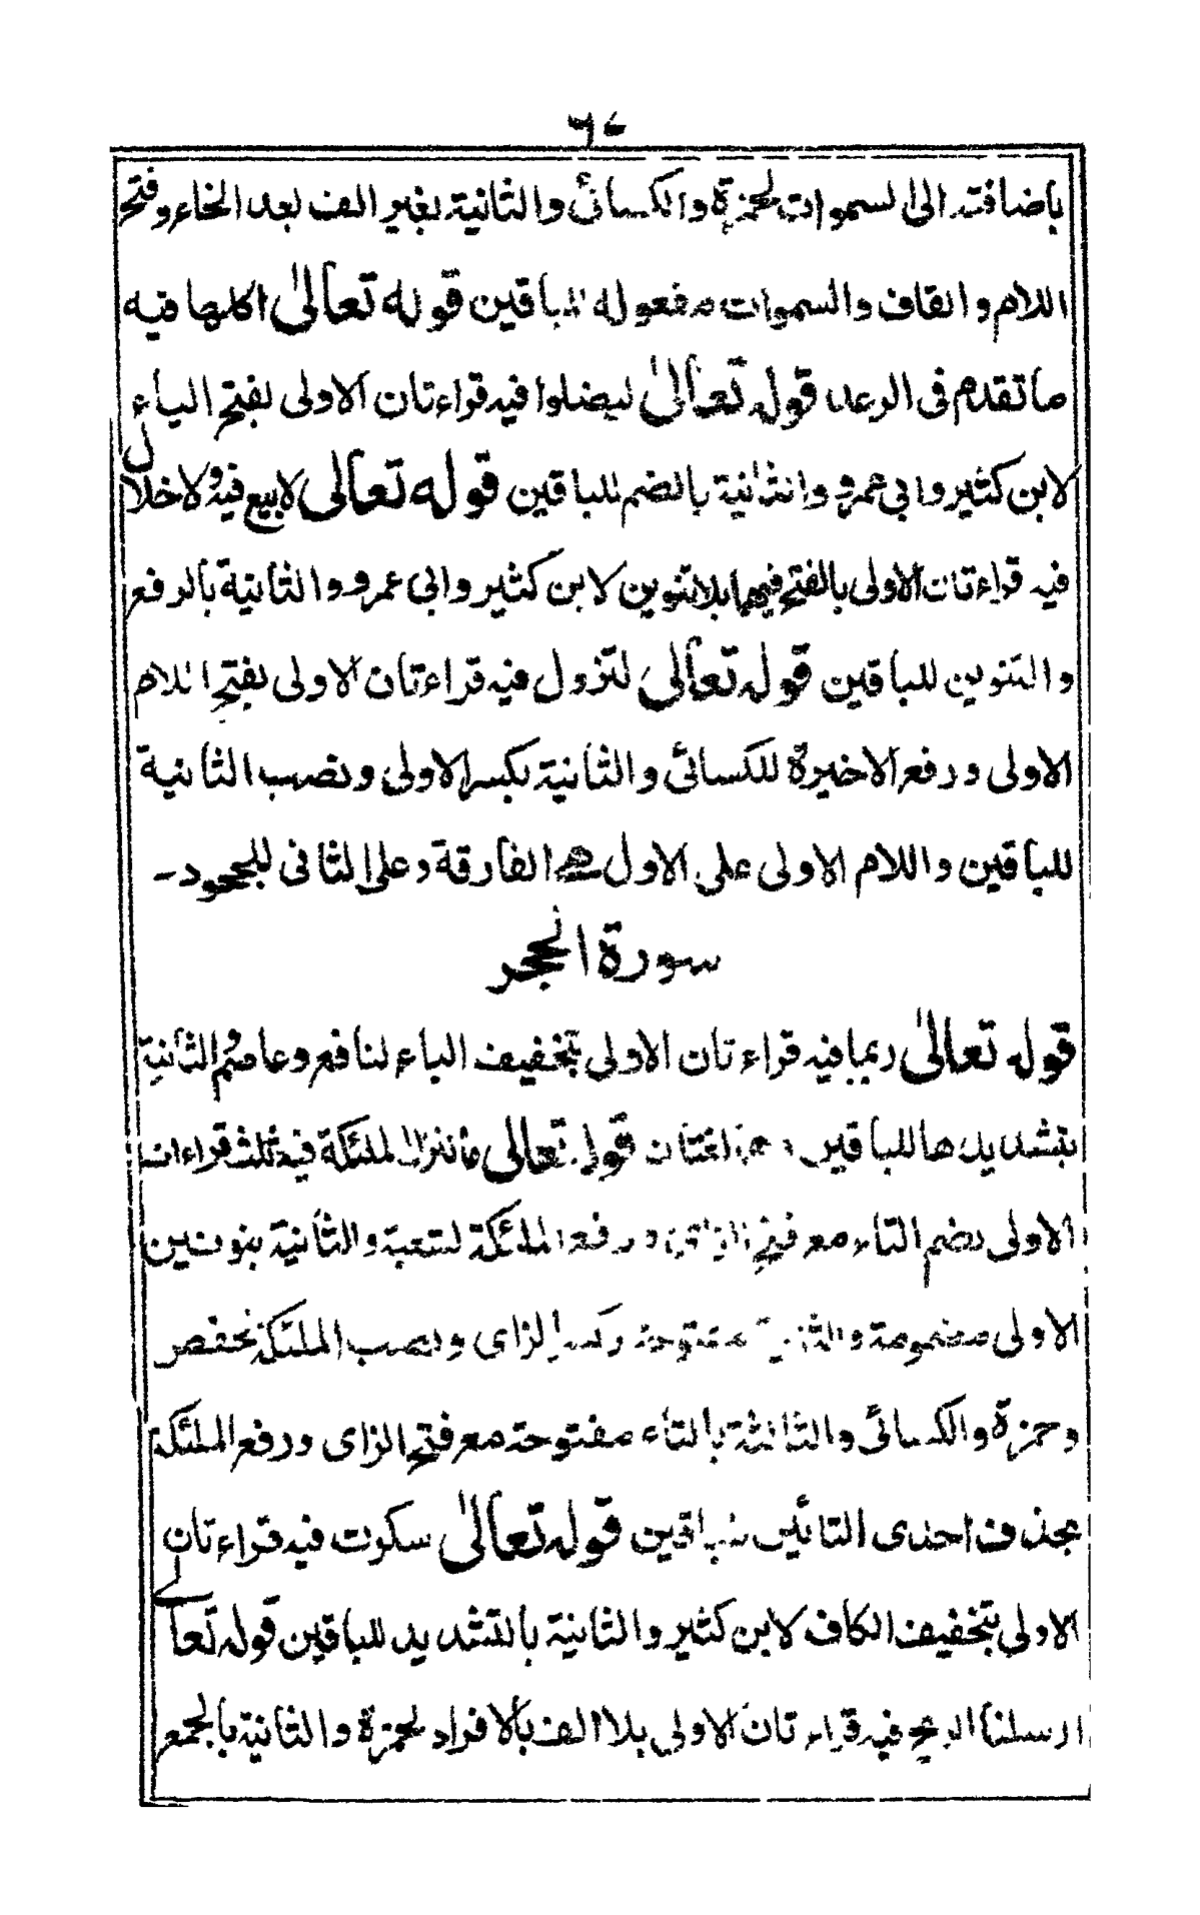 ٦٧
باضافته الى السموات لحمزة والكسائى والثانية بغير الف بعد الخاء وفتح
اللام والقاف والسموات مفعوله للباقين قوله تعالىٰ اكلها فيه
ما تقدم فى الرعد قوله تعالىٰ ليضلوا فيه قراءتان الاولى بفتح الياء
لابن كثير وابي عمرو والثانية بالضم للباقين قوله تعالىٰ لا بيع فيه ولا خلال
فيه قراءتان الاولى بالفتح فيهما بلا تنوين لابن كثير وابي عمرو والثانية بالرفع
والتنوين للباقين قوله تعالىٰ لتزول فيه قراءتان الاولى بفتح اللام
الاولى ورفع الاخيرة للكسائى والثانية بكسر الاولى ونصب الثانية
للباقين واللام الاولى على الاول هى الفارقة وعلى الثانى للجحود-
سورة الحجر
قوله تعالىٰ ربما فيه قراءتان الاولى بتخفيف الباء لنافع وعاصم والثانية
بتشديدها للباقين وهما لغتان قوله تعالى ما ننزل الملئكة فيه ثلث قراءات
الاولى بضم التاء مع فتح الزاى ورفع الملئكة لشعبة والثانية بنونين
الاولى مضمومة والثانية مفتوحة وكسر الزاى ونصب الملئكة لحفص
وحمزة والكسائى والثالثة بالتاء مفتوحة مع فتح الزاى ورفع الملئكة
بحذف احدى التائين للباقين قوله تعالىٰ سكرت فيه قراءتان
الاولى بتخفيف الكاف لابن كثير والثانية بالتشديد للباقين قوله تعالے
ارسلنا الريح فيه قراءتان الاولى بلا الف بالافراد لحمزة والثانية بالجمع